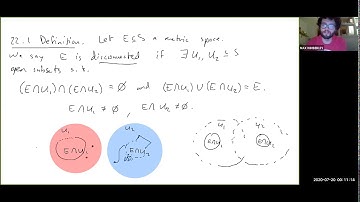 22.1 Definition. Let E⊆S a metric space.
We say E is disconnected if ∃ U₁, U₂ ⊆ S
open subsets s.t.
(E∩U₁)∩(E∩U₂) = ∅ and (E∩U₁)∪(E∩U₂) = E.
E∩U₁ ≠ ∅, E∩U₂ ≠ ∅.
U₁ U₂ U₁ U₂
E∩U₁ E∩U₂ E∩U₁ E∩U₂
2020-07-20 00:11:14